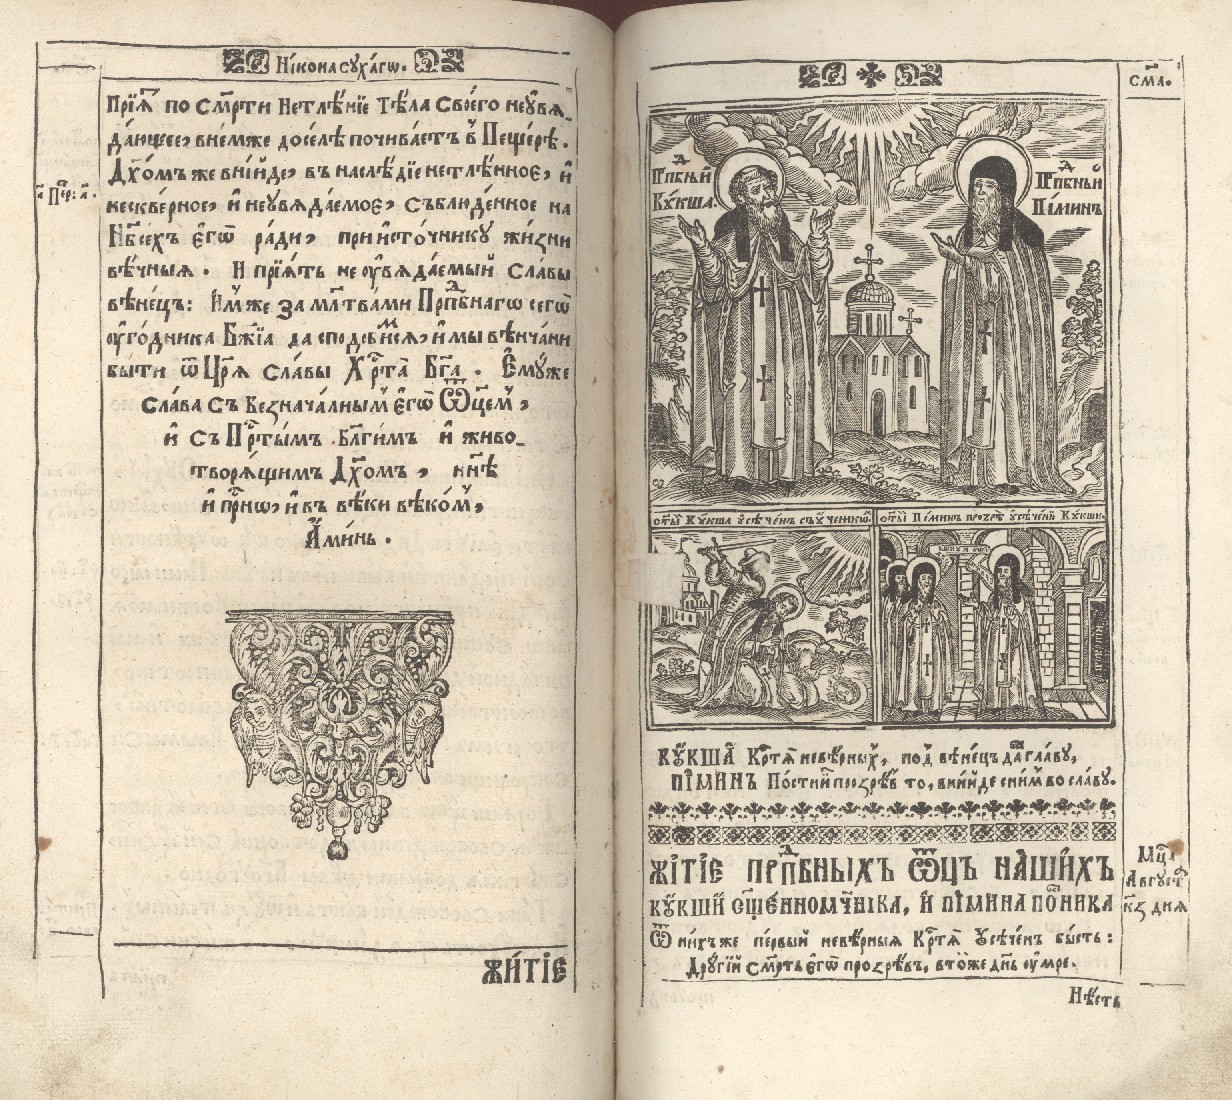 Нікона сухагѡ.
Прїѧ҃т по См҃рти Нетлѣнїе Тѣла Своего неувѧ_
дающее, внемже доселѣ почиваетъ в Пещерѣ.
Дх҃омъ же внійде, въ наслѣдїе нетлѣнное, и
нескверное, и неувѧдаемое, съблюденное на
Нб҃сехъ єгѡ ради, при источнику жизни
вѣчныѧ. И прїѧтъ неувѧдаемый Славы
вѣнецъ: Имже за мл҃твами Прпⷣбнагѡ сегѡ
угодника Бж҃їѧ да сподобимсѧ, и мы вѣнчани
быти ѿ Цр҃ѧ Славы Хрⷭ҇та Бг҃а. Емуже
Слава съ Безначалным єгѡ Ѿцем,
и съ Прⷭ҇тымъ Блг҃имъ и живо_
творѧщимъ Дх҃омъ, нн҃ѣ
и прⷭ҇нѡ, и въ вѣки вѣком,
Аминь.
а҃ Петр: а҃.
Житїе
см҃а.
Прпⷣбный
Кукша.
Прпⷣбный
Піминъ
ст҃ый Кукша усѣченъ съ ученикѡм
ст҃ый Піминъ прозрѣ усѣченїе Кукши.
Кукша Крⷭ҇тѧ невѣрных, под вѣнецъ дал главу,
Піминъ Постник прозрѣв то, внійде сним во славу.
Житїе прпⷣбныхъ ѿцъ нашихъ
Кукши сщ҃енномч҃ника, и Пімина поⷭ҇ника
Ѿ нихъже первый невѣрныѧ Крⷭ҇тѧ усѣчен бысть:
Другїй См҃рть єгѡ прозрѣвъ, втойже дн҃ь умре.
Мцⷭ҇а
Август
к҃з днѧ
Нѣсть